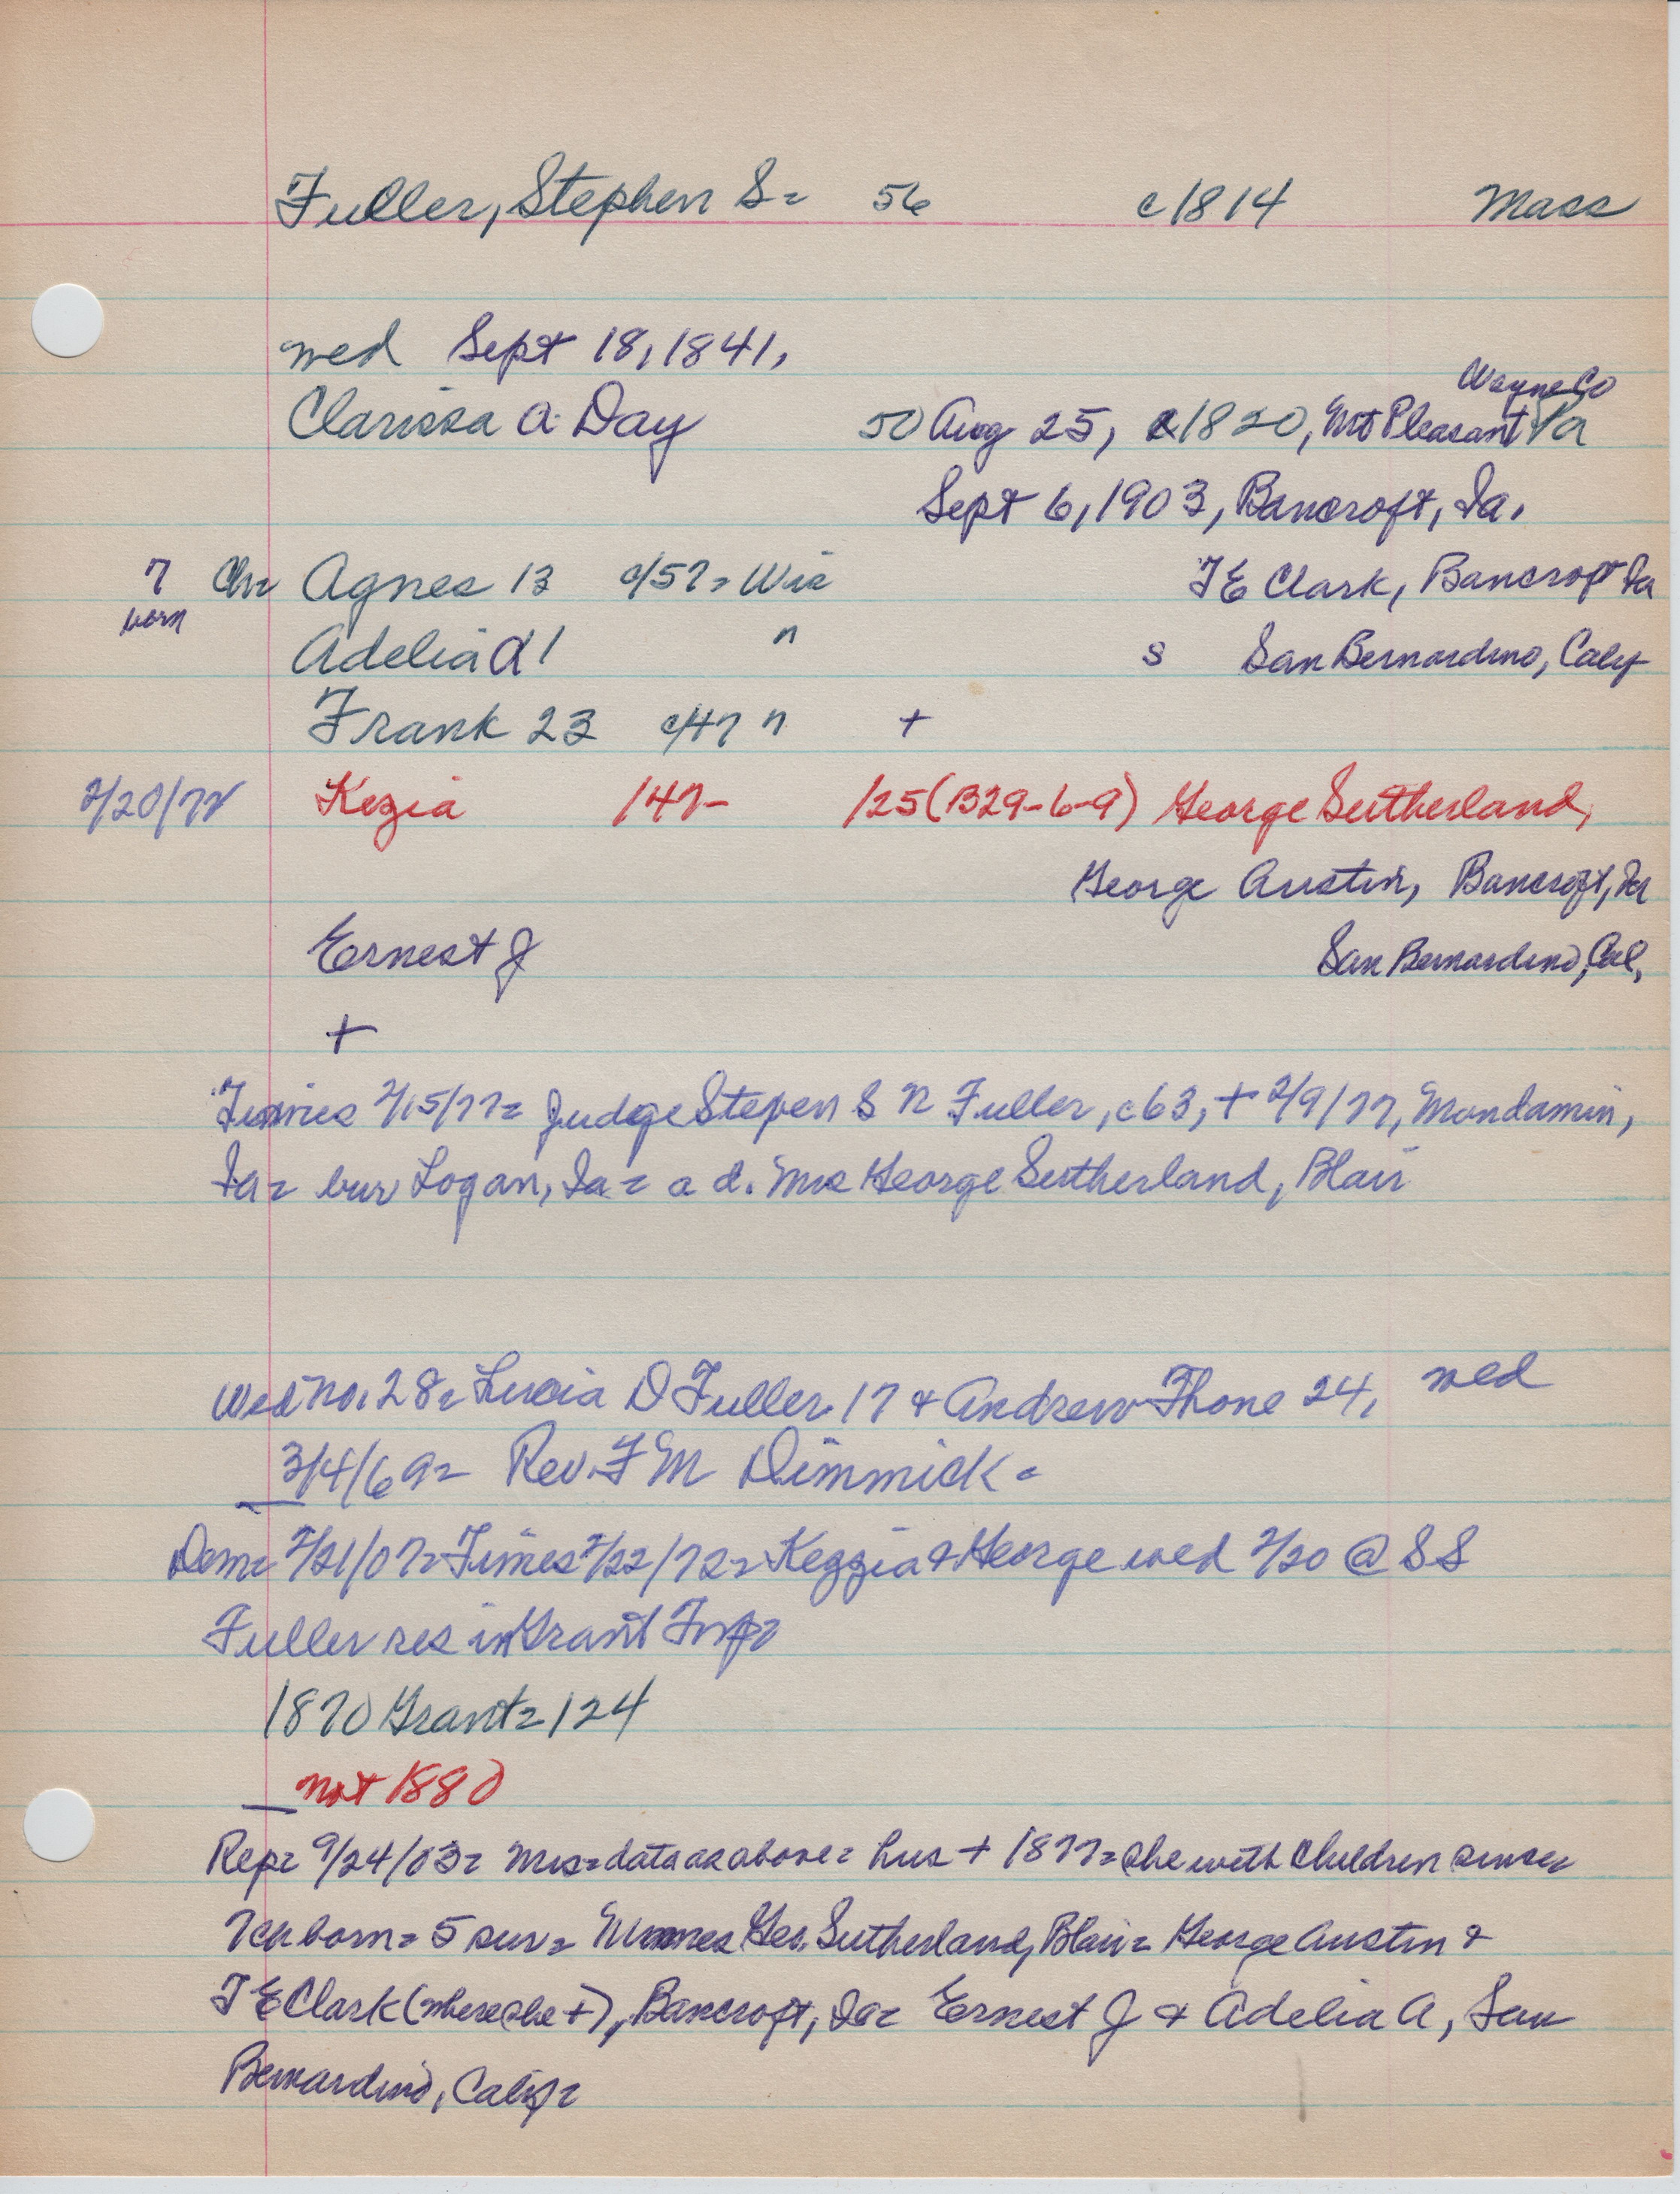 Fuller, Stephen S= 56 c1814 Mass
wed Sept 18, 1841,
Wayne Co
Clarissa A Day 50 Aug 25, 1820, Mt Pleasant Pa
Sept 6, 1903, Bancroft, Ia.
7 Ch= Agnes 13 c/57= Wis T E Clark, Bancroft Ia
born
Adelia A 1 " s San Bernardino, Calif
Frank 23 c/47 " +
2/20/72 Kezia /47- /25(1329-6-9) George Sutherland,
George Austin, Bancroft, Ia
Ernest J San Bernardino, Cal,
+
Times 2/15/77= Judge Stepen S N Fuller, c63, + 2/9/77, Mondamin,
Ia= bur Logan, Ia= a d. Mrs George Sutherland, Blair
Wed no. 28= Lucia D Fuller 17 & Andrew Thone 24, wed
3/4/69= Rev. F M Dimmick=
Dem= 2/21/07= Times 2/22/72= Kezzia & George wed 2/20 @ S S
Fuller res in Grant Twp=
1870 Grant= 124
not 1880
Rep= 9/24/03= Mrs= data as above= hus + 1877= she with children since=
7 ch born= 5 sur= Mmes Geo. Sutherland, Blair= George Austin &
T E Clark (where she +), Bancroft, Ia= Ernest J & Adelia A, San
Bernardino, Calif=